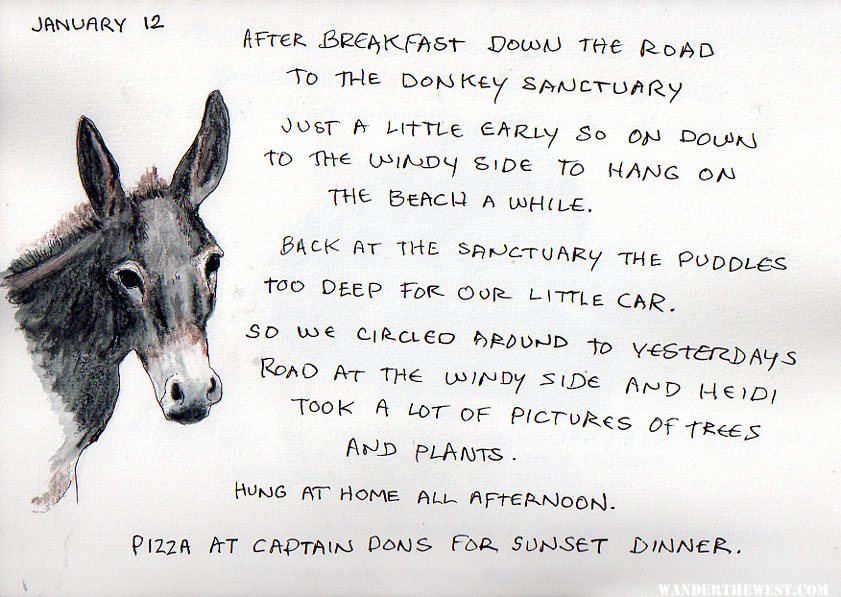 JANUARY 12
AFTER BREAKFAST DOWN THE ROAD
TO THE DONKEY SANCTUARY
JUST A LITTLE EARLY SO ON DOWN
TO THE WINDY SIDE TO HANG ON
THE BEACH A WHILE.
BACK AT THE SANCTUARY THE PUDDLES
TOO DEEP FOR OUR LITTLE CAR.
SO WE CIRCLED AROUND TO YESTERDAYS
ROAD AT THE WINDY SIDE AND HEIDI
TOOK A LOT OF PICTURES OF TREES
AND PLANTS.
HUNG AT HOME ALL AFTERNOON.
PIZZA AT CAPTAIN DONS FOR SUNSET DINNER.
WANDERTHEWEST.COM